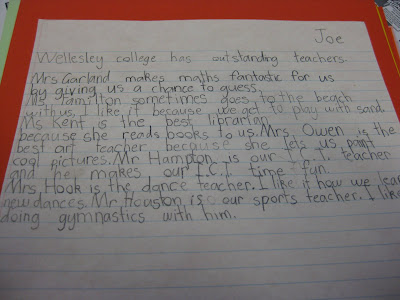 Joe
Wellesley college has outstanding teachers.
Mrs Garland makes maths fantastic for us
by giving us a chance to guess.
Ms Hamilton sometimes does to the beach
with us. I like it because we get to play with sand.
Ms Kent is the best librarian
because she reads books to us. Mrs. Owen is the
best art teacher because she lets us paint
cool pictures. Mr Hampton is our I.C.T. teacher
and he makes our I.C.T time fun.
Mrs Hook is the dance teacher. I like it how we lear
new dances. Mr Houston is our sports teacher. I like
doing gymnastics with him.